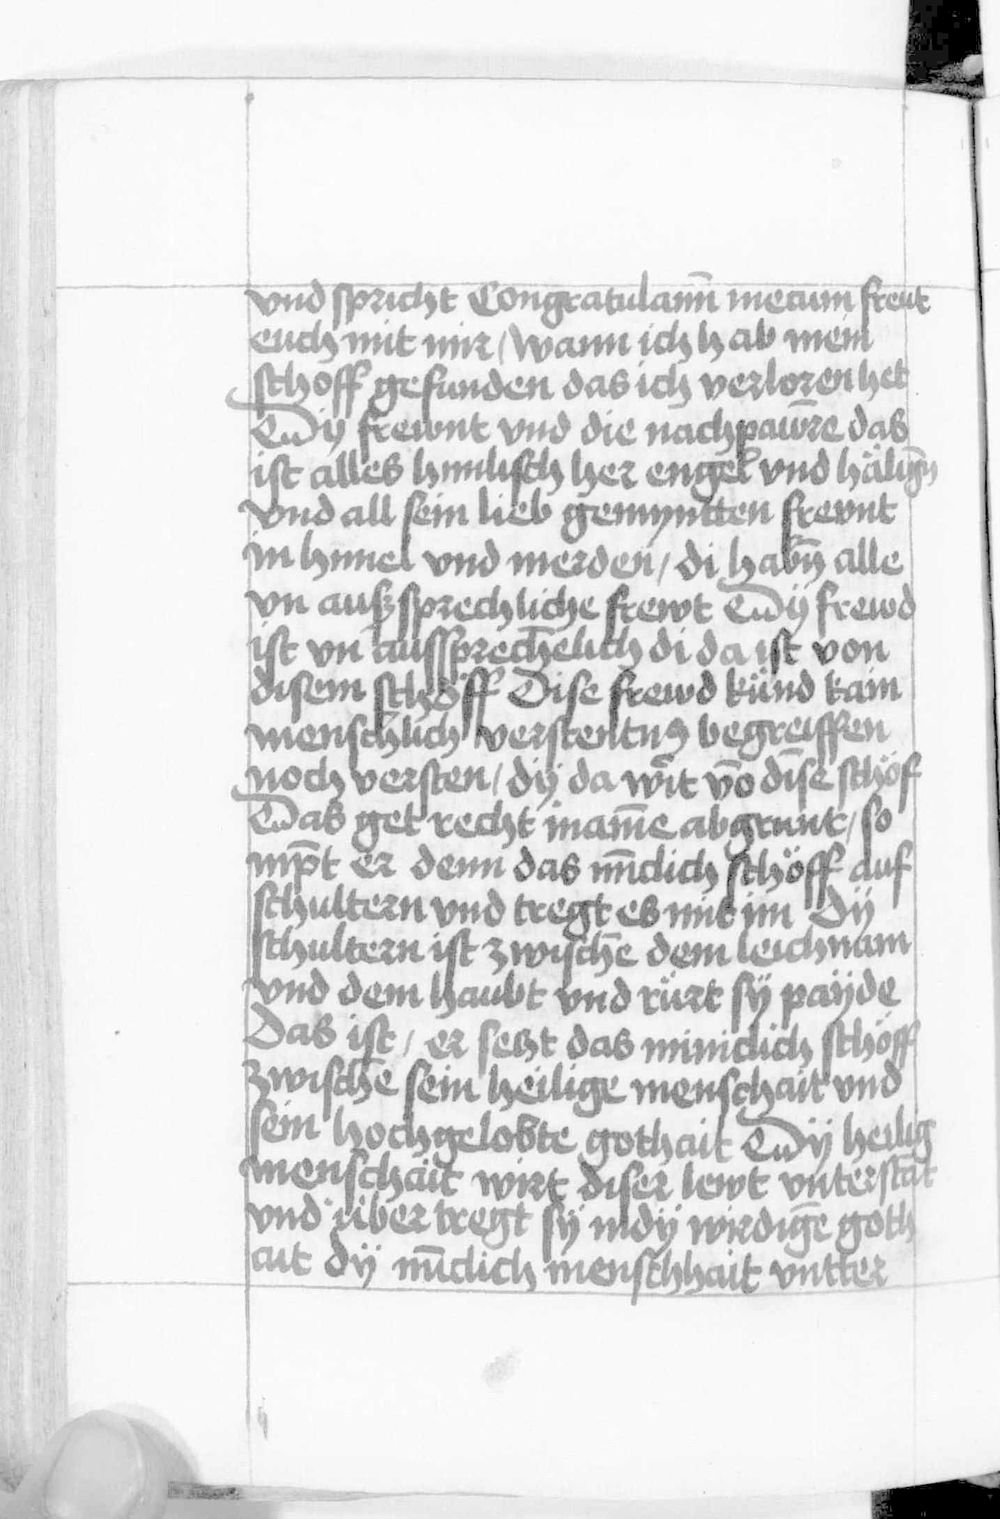 vnd spricht Congratulamī mecum freut
euch mit mir / wann ich hab mein
schoff gefunden das ich verloren het
Dÿ frewnt vnd die nachpaw̄re das
ist alles himlisch her engel vnd hälign̄
vnd all sein lieb gemynten frewnt
in hīmel vnd in erden / di habn̄ alle
vn aussprechliche frewt Dÿ frewd
ist vn aussprechēlich di da ist von
disem schöff Dise frewd künd kain
menschlich verstentnus begreiffen
noch versten / dÿ da wirt vō disē schöf
Das get recht in ainē abgrunt / so
nīpt er denn das mīclich schöff auf
schultern vnd tregt es mit im Dÿ
schultern ist zwischē dem leichnam
vnd dem haubt vnd rürt sÿ payde
Das ist / er setzt das miniclich schöff
zwischē sein heilige menschait vnd
sein hochgelobte gothait Dÿ heilig
menschait wirt diser lewt vnterstāt
vnd über tregt sÿ in dÿ wirdigē goth
ait dÿ mīclich menschhait vntter